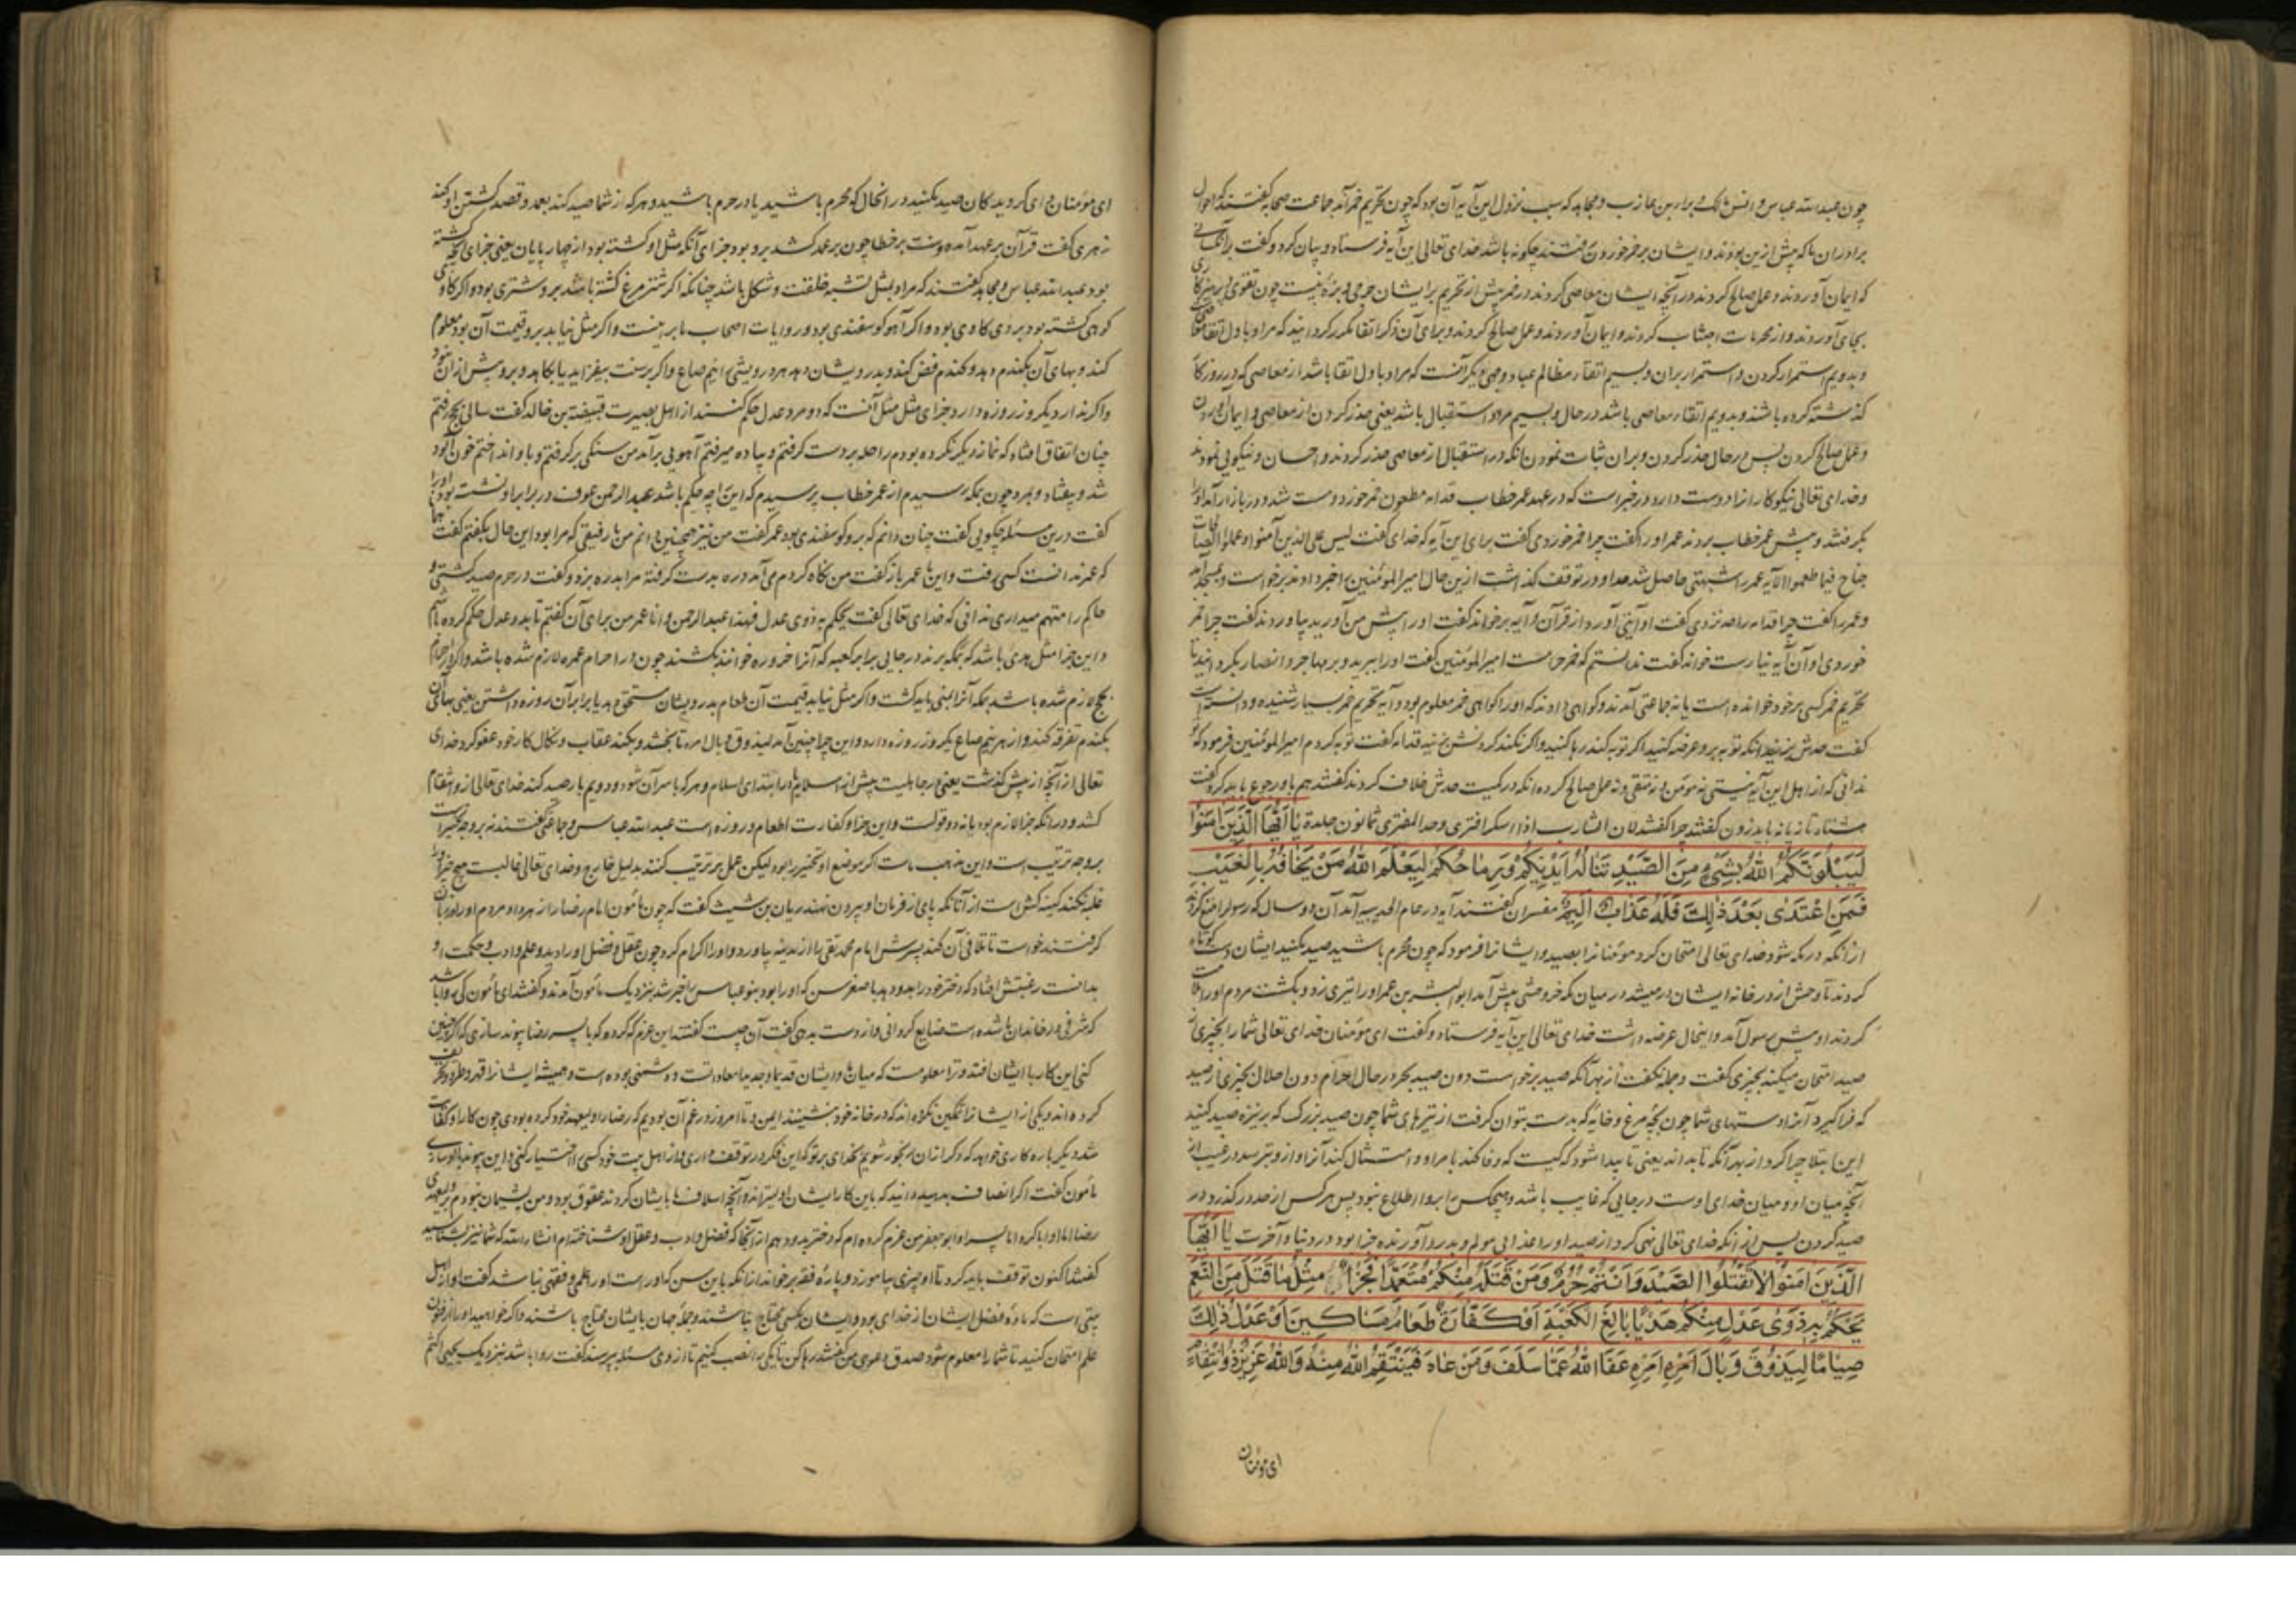 چون عبدالله عباس و انس مالک و براء بن عازب و مجاهد که سبب نزول این آیه آن بود که چون تحریم خمر آمد جماعت صحابه گفتند که احوال
برادران ما که پیش ازین بودند و ایشان بر خمر خوردن رفتند چگونه باشد خدای تعالی این آیه فرستاد و بیان کرد و گفت بر آنکسانی
که ایمان آوردند و عمل صالح کردند در آنچه ایشان معاصی کردند در خمر پیش از تحریم بر ایشان حرجی و بزه نیست چون تقوی و پرهیزکاری
بجای آوردند و از محرمات اجتناب کردند و ایمان آوردند و عمل صالح کردند و برای آن ذکر اتقا مکرر کردانید که مراد باول اتقا معاصی
و بدویم استمرار کردن و استمرار بران و بسیم اتقاء مظالم عباد و وجهی دیگر آنست که مراد باول اتقا باشد از معاصی که در روزگار
گذشته کرده باشند و بدویم اتقاء معاصی باشد در حال و بسیم مراد استقبال باشد یعنی حذر کردن از معاصی و ایمان آوردن
و عمل صالح کردن پس در حال حذر کردن و بران ثبات نمودن انکه در استقبال از معاصی حذر کردند و احسان و نیکویی نمودند
و خدای تعالی نیکوکارانرا دوست دارد و در خبر است که در عهد عمر خطاب قدامه مظعون خمر خورد و مست شد و در بازار آمد اورا
بگرفتند و پیش عمر خطاب بردند عمر اورا گفت چرا خمر خوردی گفت برای این آیه که خدای گفت لیس علی الذین آمنوا و عملوا الصالحات
جناح فیما طعموا الآیه عمر را شبهتی حاصل شد حد او در توقف گذاشت ازین حال امیر المؤمنین را خبر دادند برخواست و بمسجد آمد
و عمر را گفت چرا قدامه را حد نزدی گفت او آیتی آورد از قرآن و آیه برخواند گفت اورا پیش من آورید بیاوردند گفت چرا خمر
خوردی او آن آیه بیارست خواند گفت ندانستم که خمر حرامست امیر المؤمنین گفت اورا ببرید و بر مهاجر و انصار بگردانید تا
تحریم خمر کسی برخود خوانده است یا نه جماعتی آمدند و کواهی دادند که اورا کواهی خمر معلوم بود و آیه تحریم خمر بسیار شنیده و دانسته است
گفت حدش بزنید انکه توبه برو عرضه کنید اگر توبه کند رها کنید و اگر نکند گردنش بزنید قدامه گفت توبه کردم امیر المؤمنین فرمود که
ندانی که از اهل این آیه نیستی نه مؤمن و نه متقی و نه عمل صالح کرده انکه در کمیت حدش خلاف کردند گفتند هم باو رجوع باید کرد گفت
هشتاد تازیانه باید زدن گفتند چرا گفت لان الشارب اذا سکر افتری و حد المفتری ثمانون جلدة یا ایها الذین امنوا
لیبلونکم الله بشیء من الصید تناله ایدیکم و رماحکم لیعلم الله من یخافه بالغیب
فمن اعتدی بعد ذلک فله عذاب الیم مفسران گفتند آیه در عام الحدیبیه آمد آن دو سال که رسول را منع کردند
از آنکه در مکه شود خدای تعالی امتحان کرد مؤمنانرا بصید و ایشانرا فرمود که چون محرم باشید صید مکنید ایشان دست کوتاه
کردند تا وحش از در خانه ایشان در میشد در میان مکه خروحشی پیش آمد ابو الیسر بن عمر اورا تیری زد و بکشت مردم اورا ملامت
کردند او پیش رسول آمد و اینحال عرضه داشت خدای تعالی این آیه فرستاد و گفت ای مؤمنان خدای تعالی شمارا بچیزی از
صید امتحان میکند بچیزی گفت و جمله نگفت از بهر آنکه صید بر خواست دون صید بحر در حال احرام دون احلال بچیزی از صید
که فراگیرد آنرا دستهای شما چون بچه مرغ و خایه که بدست بتوان گرفت از تیرهای شما چون صید بزرگ که بر نیزه صید کنید
این ابتلا چرا کرد از بهر آنکه تا بداند یعنی تا پیدا شود که کیست که وفا کند بامر او و امتثال کند آنرا و از و بترسد در غیب از
آنچه میان او و میان خدای اوست در جایی که غایب باشد و هیچکس را برو اطلاع نبود پس هر کس از حد در گذرد در
صید کردن پس از آنکه خدای تعالی نهی کرد از صید اورا عذابی مولم و بدرد آورنده جزا بود در دنیا و آخرت یا ایها
الذین امنوا لا تقتلوا الصید و انتم حرم و من قتله منکم متعمدا فجزاء مثل ما قتل من النعم
یحکم به ذوی عدل منکم هدیا بالغ الکعبة او کفارة طعام مساکین او عدل ذلک
صیاما لیذوق وبال امره امره عفا الله عما سلف و من عاد فینتقم الله منه و الله عزیز ذو انتقام
ای مؤمنان
ای مؤمنان و ای گرویدکان صید مکنید در انحال که محرم باشید یا در حرم باشید و هر که از شما صید کند بعمد و قصد کشتن او کند
زهری گفت قرآن بر عمد آمده و سنت بر خطا چون بر عمد کشد برو بود جزای آنکه مثل او کشته بود از چهار پایان یعنی جزای آنچه کشته
بود عبدالله عباس و مجاهد گفتند که مراد بمثل تشبه خلقت و شکل باشد چنانکه اگر شترمرغ کشته باشد برو شتری بود و اگر گاو
کوهی کشته بود بروی گاوی بود و اگر آهو گوسفندی بود و روایات اصحاب ما برینست و اگر مثل نیابد برو قیمت آن بود معلوم
کند و بهای آن بگندم دهد و گندم فض کند و بدرویشان دهد هر درویشی را نیم صاع و اگر برسنت بیفزاید یا بکاهد و برو پیش ازان نبود
و اگر ندارد یکروز روزه دارد و جزای مثل مثل آنست که دو مرد عدل حکم کنند از اهل بصیرت قبیصة بن خالد گفت سالی بحج رفتم
چنان اتفاق افتاد که نماز دیگر نکرده بودم راحله بردست گرفتم و پیاده میرفتم آهویی برآمد من سنگی برگرفتم و باو انداختم خون آلود
شد و بیفتاد و بمرد چون بمکه رسیدم از عمر خطاب پرسیدم که این را چه حکم باشد عبدالرحمن عوف در برابر او نشسته بود او را
گفت درین مسئله چگویی گفت چنان دانم که برو گوسفندی بود عمر گفت من نیز همچنین دانم من با رفیقی که مرا بود این حال بگفتم گفت
که عمر ندانست کسی رفت و این با عمر باز گفت من نگاه کردم می آمد دره بدست گرفته مرا بدره بزد و گفت در حرم صید کشتی و
حاکم را متهم میداری ندانی که خدای تعالی گفت یحکم به ذوی عدل فهذا عبدالرحمن و انا عمر من برای آن گفتم تا بدو عدل حکم کرده باشم
و این جزا مثل هدی باشد که بمکه برند در جایی برابر کعبه که آنرا حزوره خوانند بکشند چون در احرام عمره لازم شده باشد و اگر در احرام
حج لازم شده باشد بمکه آنرا بمنی باید کشت و اگر مثل نیابد قیمت آن طعام بدرویشان مستحق دهد یا برابر آن روزه داشتن یعنی بهای آن
بگندم تفرقه کند و از هر نیم صاع یکروز روزه دارد و این چرا چنین آمد لیذوق وبال امره تا بچشد و بکند عقاب و نکال کار خود عفو کرد خدای
تعالی از آنچه از پیش گذشت یعنی در جاهلیت پیش از اسلام یا در ابتدای اسلام و هر که با سر آن شود و دویم بار صید کند خدای تعالی ازو انتقام
کشد و در آنکه جزا لازم بود یا نه دو قولست و این جزا و کفارت اطعام و روزه است عبدالله عباس و جماعتی گفتند نه بر وجه تخییر است
بر وجه ترتیب است و این مذهب ماست اگر موضع او تخییر را بود لیکن عمل بر ترتیب کنند بدلیل خارج و خدای تعالی غالبست هیچ چیز او را
غلبه نکند کینه کش است از آنانکه پای از فرمان او بیرون نهند ریان بن شبیب گفت که چون مأمون امام رضا را زهر داد و مردم او را در زبان
گرفتند خواست تا تلافی آن کند پسرش امام محمد تقی را از مدینه بیاورد و اورا اکرام کرد چون عقل و فضل او را دید و علم و ادب و حکمت او
بدانست رغبتش افتاد که دختر خود را بدو دهد با صغر سن که او را بود بنو عباس را خبر شد بنزدیک مأمون آمدند و گفتند ای مأمون کی روا باشد
که شرفی در خاندان ما شده است ضایع گردانی و از دست بدهی گفت آن چیست گفتند این عزم که کرده که با پسر رضا پیوند سازی که اگر چنین
کنی این کار با ایشان افتد و ترا معلومست که میان ما و ایشان قدیما و جدیدا معادات و دشمنی بوده است و همیشه ایشانرا قهر و طرد
کرده اند و یکی از ایشانرا تمکین نکرده اند که در خانه خود بنشینند ایمن و تا امروز در غم آن بودیم که رضا را ولیعهد خود کرده بودی چون کار او کفایت
شد دیگر باره کاری خواهد که دگر ازان رنجور شویم بخدای بر تو که این فکر در توقف داری و از اهل بیت خود کسی را اختیار کنی و این پیوند با او سازی
مأمون گفت اگر انصاف بدهید دانید که باین کار ایشان اولیترند و آنچه اسلاف ما بایشان کردند عقوق بود و من پشیمان نبودم بر ولیعهدی
رضا اما او ابا کرد اما پسر او ابو جعفر من عزم کرده ام که دختر بدو دهم از آنجا که فضل و ادب و عقل او شناخته ام انشاء الله که شما نیز بشناسید
گفتند اکنون توقف باید کرد تا او چیزی بیاموزد و پاره فقه بر خواند از آنکه باین سن که او راست او را علمی و فقهی نباشد گفت او از اهل
بیتی است که ماده فضل ایشان از خدای بود و ایشان بکسی محتاج نباشند و جمله جهان بایشان محتاج باشند و اگر خواهید او را از فنون
علم امتحان کنید تا شما را معلوم شود صدق دعوی من گفتند رها کن تا یکی را نصب کنیم تا از وی مسئله پرسد گفت روا باشد بنزدیک یحیی اکثم